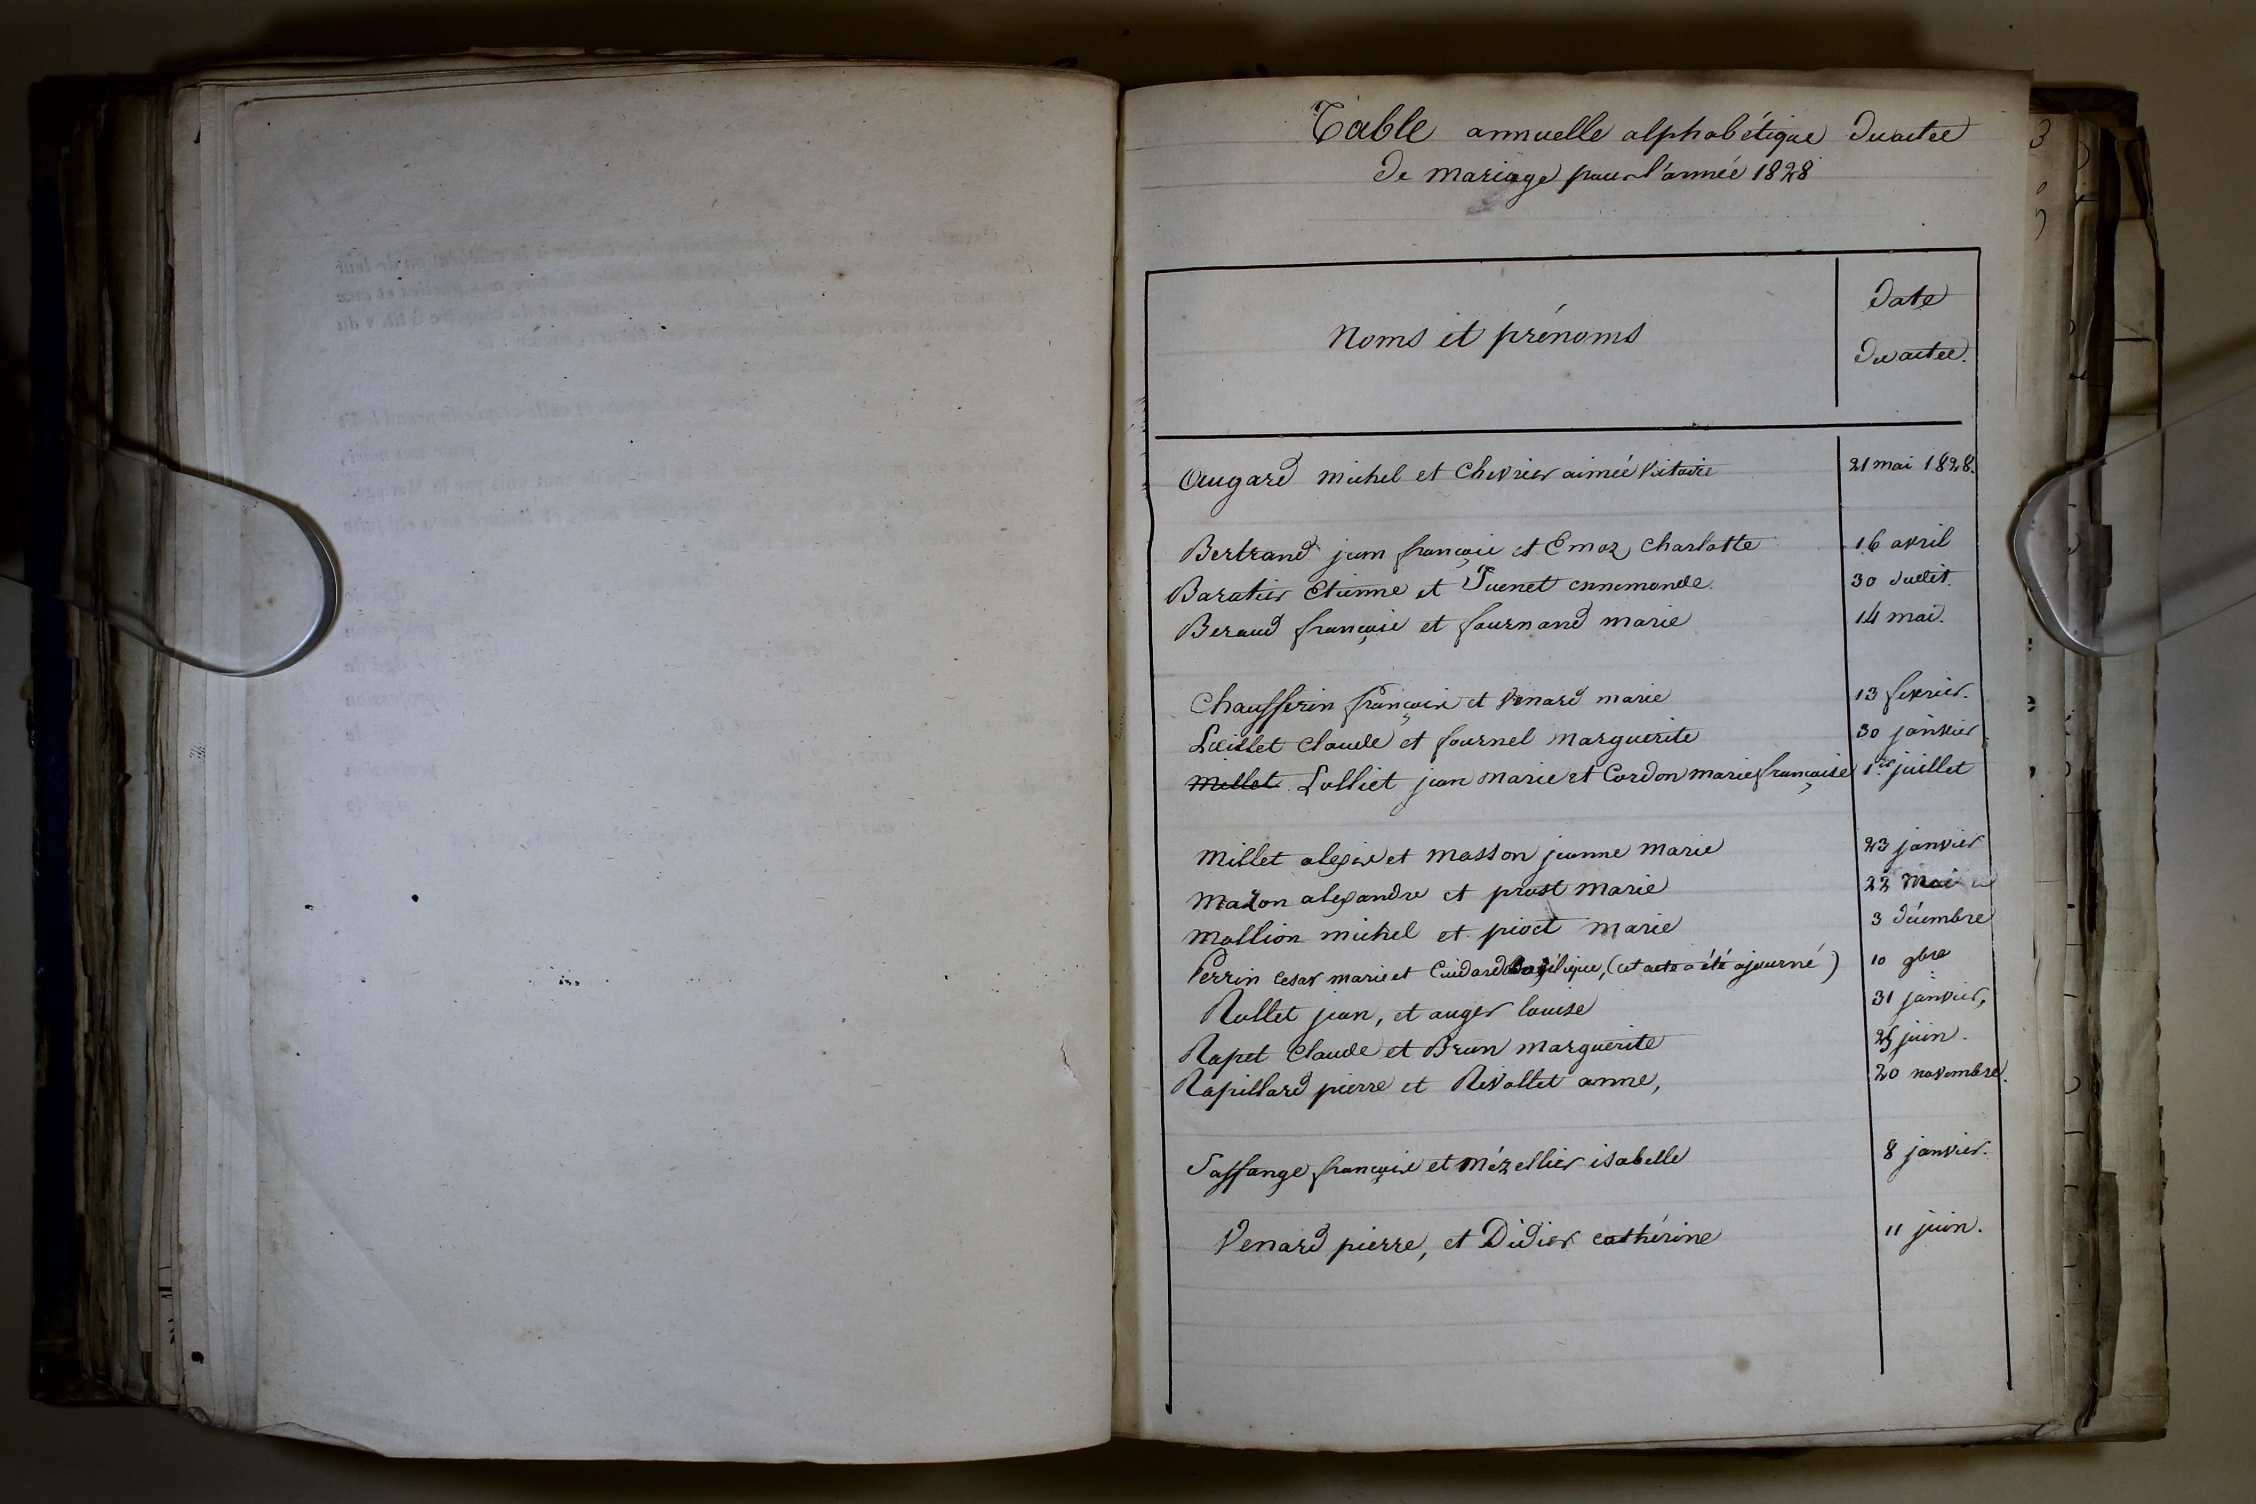 Table annuelle alphabétique des actes
de mariage pour l'année 1828
Noms et prénoms
Date
des actes.
Augard michel et Chevrier aimée Victoire 21 mai 1828.
Bertrand jean françois et Emoz Charlotte 16 avril
Baratier Etienne et ennemonde. 30 dudit.
Beraud françois et fournand marie 14 mai.
Chaufferin françois et Venard marie 13 fevrier.
Lœillet Claude et fournel Marguerite 30 janvier
Millet Lolliet jean Marie et Cordon marie françoise 1er juillet
Millet alexis et Masson jeanne Marie 23 janvier
Mazon alexandre et prost Marie 22 Mai
Mollion michel et pioct Marie 3 décembre
Perrin Cesar marie et Cuidard (cet acte a été ajourné) 10 9bre
Rollet jean, et auger louise 31 janvier,
Rapet Claude et Brun Marguerite 25 juin.
Rapillard pierre et Revollet anne, 20 novembre.
Saffange françois et Mézellier isabelle 8 janvier.
Venard pierre, et Didier cathérine 11 juin.